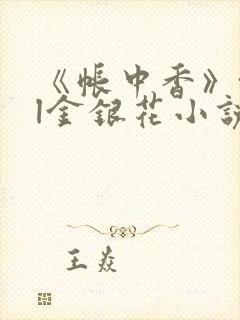 《帐中香》
|金银花小说
王焱